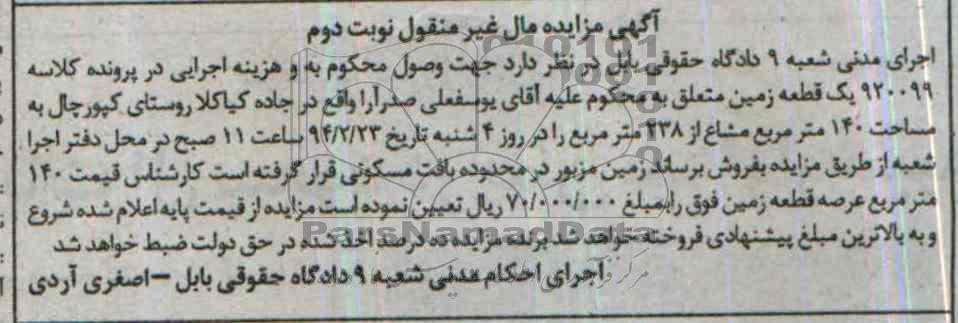 آگهی مزایده مال غیر منقول نوبت دوم
اجرای مدنی شعبه ۹ دادگاه حقوقی بابل در نظر دارد جهت وصول محکوم به و هزینه اجرایی در پرونده کلاسه
۹۲۰۰۹۹ یک قطعه زمین متعلق به محکوم علیه آقای یوسفعلی صدرآرا واقع در جاده کیاکلا روستای کپورچال به
مساحت ۱۴۰ متر مربع مشاع از ۲۳۸ متر مربع را در روز ۴ شنبه تاریخ ۹۴/۲/۲۳ ساعت ۱۱ صبح در محل دفتر اجرا
شعبه از طریق مزایده بفروش برساند زمین مزبور در محدوده بافت مسکونی قرار گرفته است کارشناس قیمت ۱۴۰
متر مربع عرصه قطعه زمین فوق را بمبلغ ۷۰/۰۰۰/۰۰۰ ریال تعیین نموده است مزایده از قیمت پایه اعلام شده شروع
و به بالاترین مبلغ پیشنهادی فروخته خواهد شد برنده مزایده ده درصد اخذ شده در حق دولت ضبط خواهد شد
اجرای احکام مدنی شعبه ۹ دادگاه حقوقی بابل – اصغری آردی
ParsNamadData